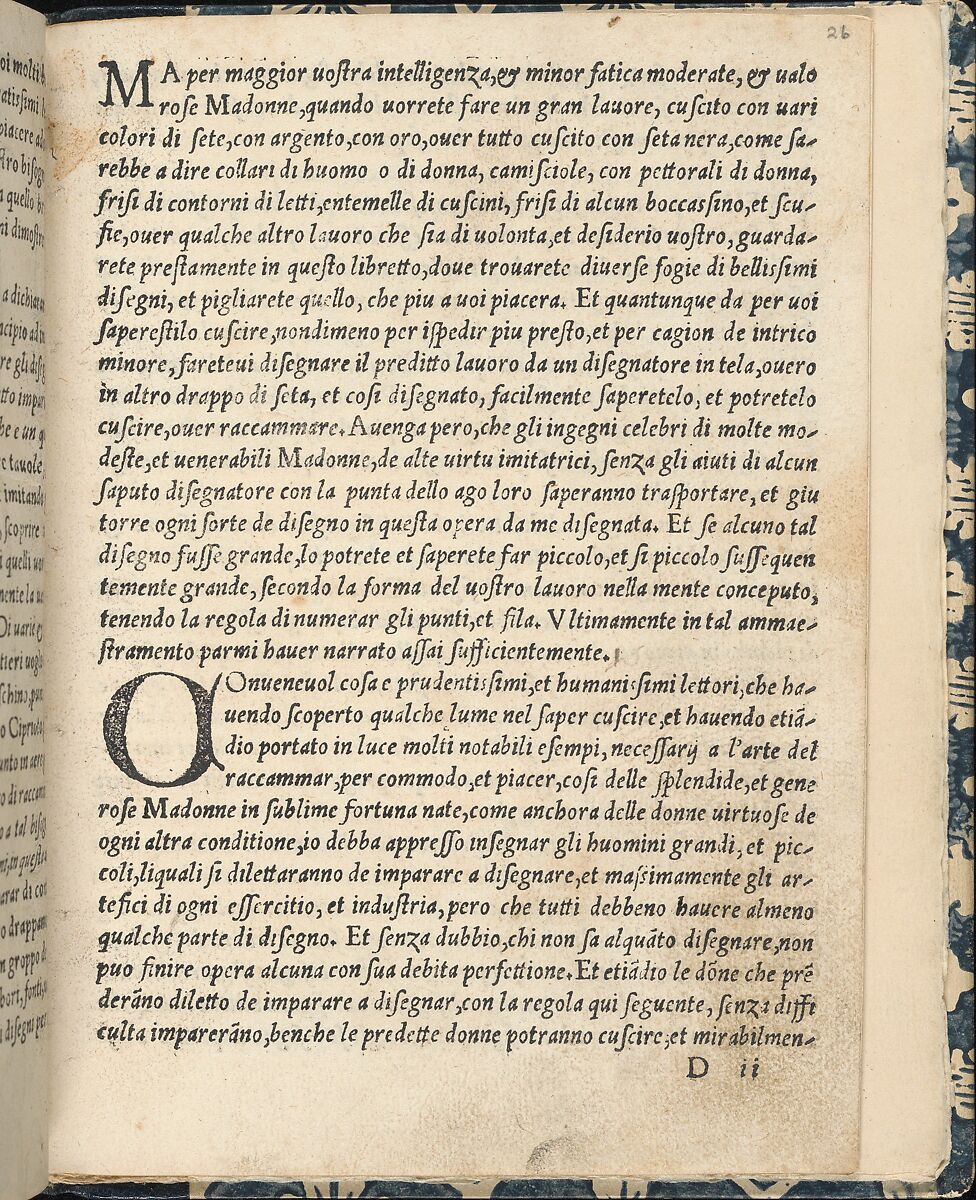 26
MA per maggior uoſtra intelligenza,& minor fatica moderate,& ualo
roſe Madonne,quando uorrete fare un gran lauore, cuſcito con uari
colori di ſete,con argento,con oro,ouer tutto cuſcito con ſeta nera,come ſa-
rebbe a dire collari di huomo o di donna, camiſciole, con pettorali di donna,
friſi di contorni di letti,entemelle di cuſcini, friſi di alcun boccaſſino,et ſcu-
fie,ouer qualche altro lauoro che ſia di uolonta,et deſiderio uoſtro, guarda-
rete preſtamente in queſto libretto,doue trouarete diuerſe fogie di belliſſimi
diſegni, et pigliarete quello, che piu a uoi piacera. Et quantunque da per uoi
ſapereſtilo cuſcire,nondimeno per iſpedir piu preſto,et per cagion de intrico
minore, fareteui diſegnare il preditto lauoro da un diſegnatore in tela,ouero
in altro drappo di ſeta, et coſi diſegnato, facilmente ſaperetelo, et potretelo
cuſcire,ouer raccammare. Auenga pero,che gli ingegni celebri di molte mo-
deſte,et uenerabili Madonne,de alte uirtu imitatrici, ſenza gli aiuti di alcun
ſaputo diſegnatore con la punta dello ago loro ſaperanno traſportare, et giu
torre ogni ſorte de diſegno in queſta opera da me diſegnata. Et ſe alcuno tal
diſegno fuſſe grande,lo potrete et ſaperete far piccolo,et ſi piccolo ſuſſequen
temente grande, ſecondo la forma del uoſtro lauoro nella mente conceputo,
tenendo la regola di numerar gli punti,et fila. Vltimamente in tal ammae-
ſtramento parmi hauer narrato aſſai ſufficientemente.
COnueneuol coſa e prudentiſſimi,et humaniſſimi lettori,che ha-
uendo ſcoperto qualche lume nel ſaper cuſcire,et hauendo etiã-
dio portato in luce molti notabili eſempi, neceſſarij a l'arte del
raccammar,per commodo,et piacer,coſi delle ſplendide,et gene
roſe Madonne in ſublime fortuna nate,come anchora delle donne uirtuoſe de
ogni altra conditione,io debba appreſſo inſegnar gli huomini grandi, et pic-
coli,liquali ſi dilettaranno de imparare a diſegnare,et maſsimamente gli ar-
tefici di ogni eſſercitio, et induſtria, pero che tutti debbeno hauere almeno
qualche parte di diſegno. Et ſenza dubbio,chi non ſa alquãto diſegnare,non
puo finire opera alcuna con ſua debita perfettione. Et etiãdio le dõne che prẽ
derãno diletto de imparare a diſegnar,con la regola qui ſeguente, ſenza diffi
culta imparerãno,benche le predette donne potranno cuſcire,et mirabilmen-
D ii